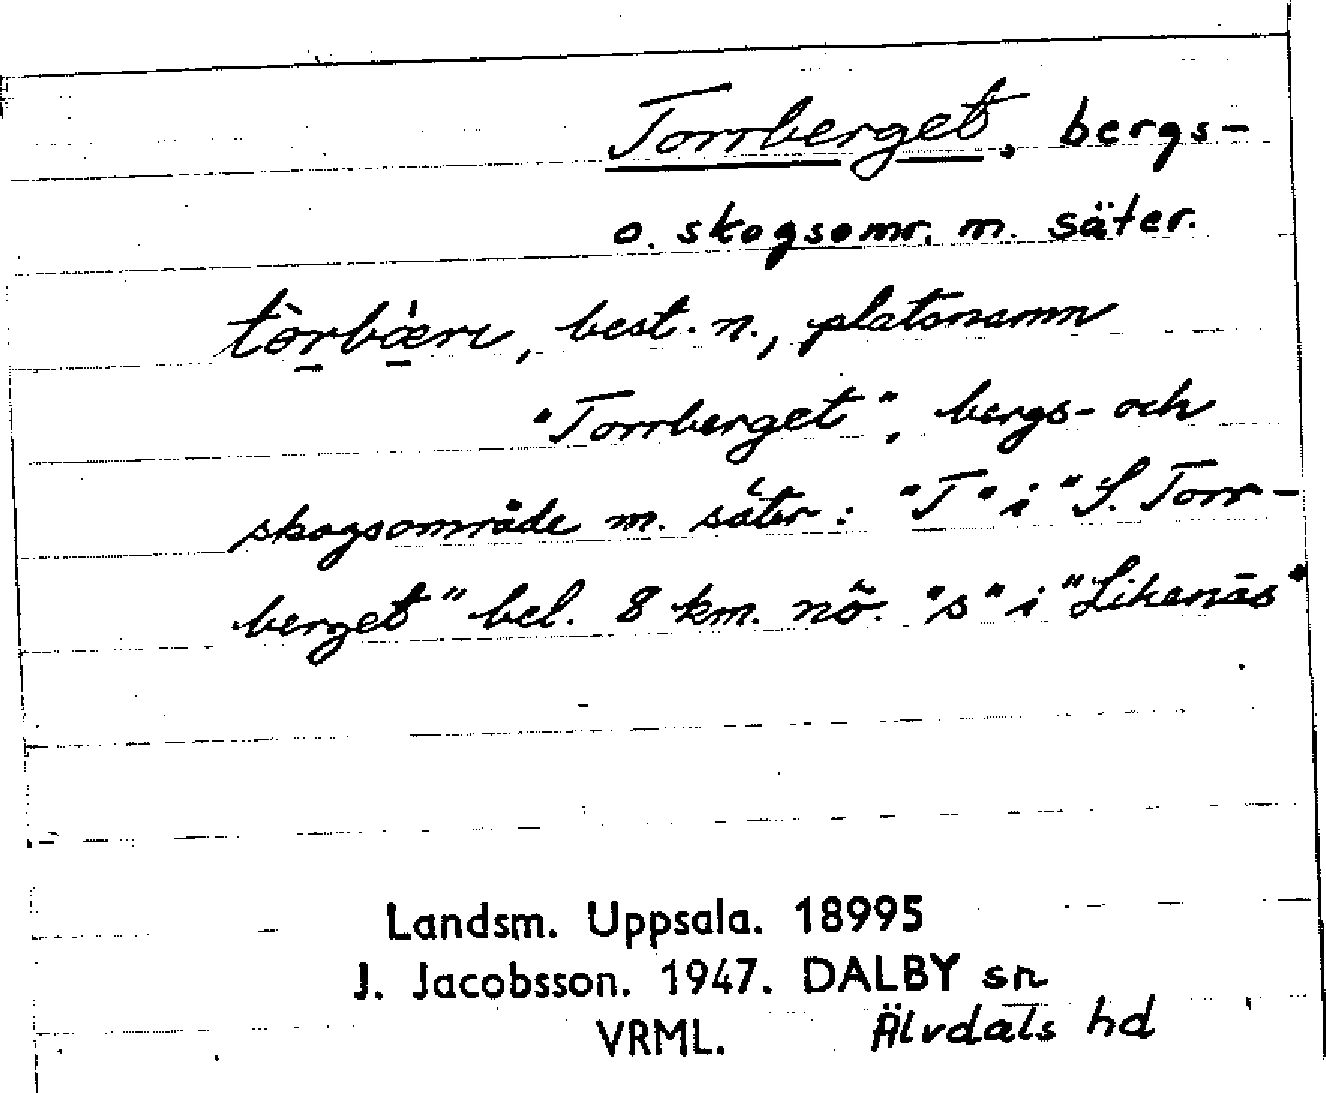 Torrberget, bergs-
o. skogsomr. m. säter.
best. n., platsnamn
"Torrberget", bergs- och
skogsområde m. säter: "T" i "S. Torr-
berget" bel. 8 km. nö. "s" i "Likenäs"
Landsm. Uppsala. 18995
J. Jacobsson. 1947. DALBY sn
VRML. Älvdals hd